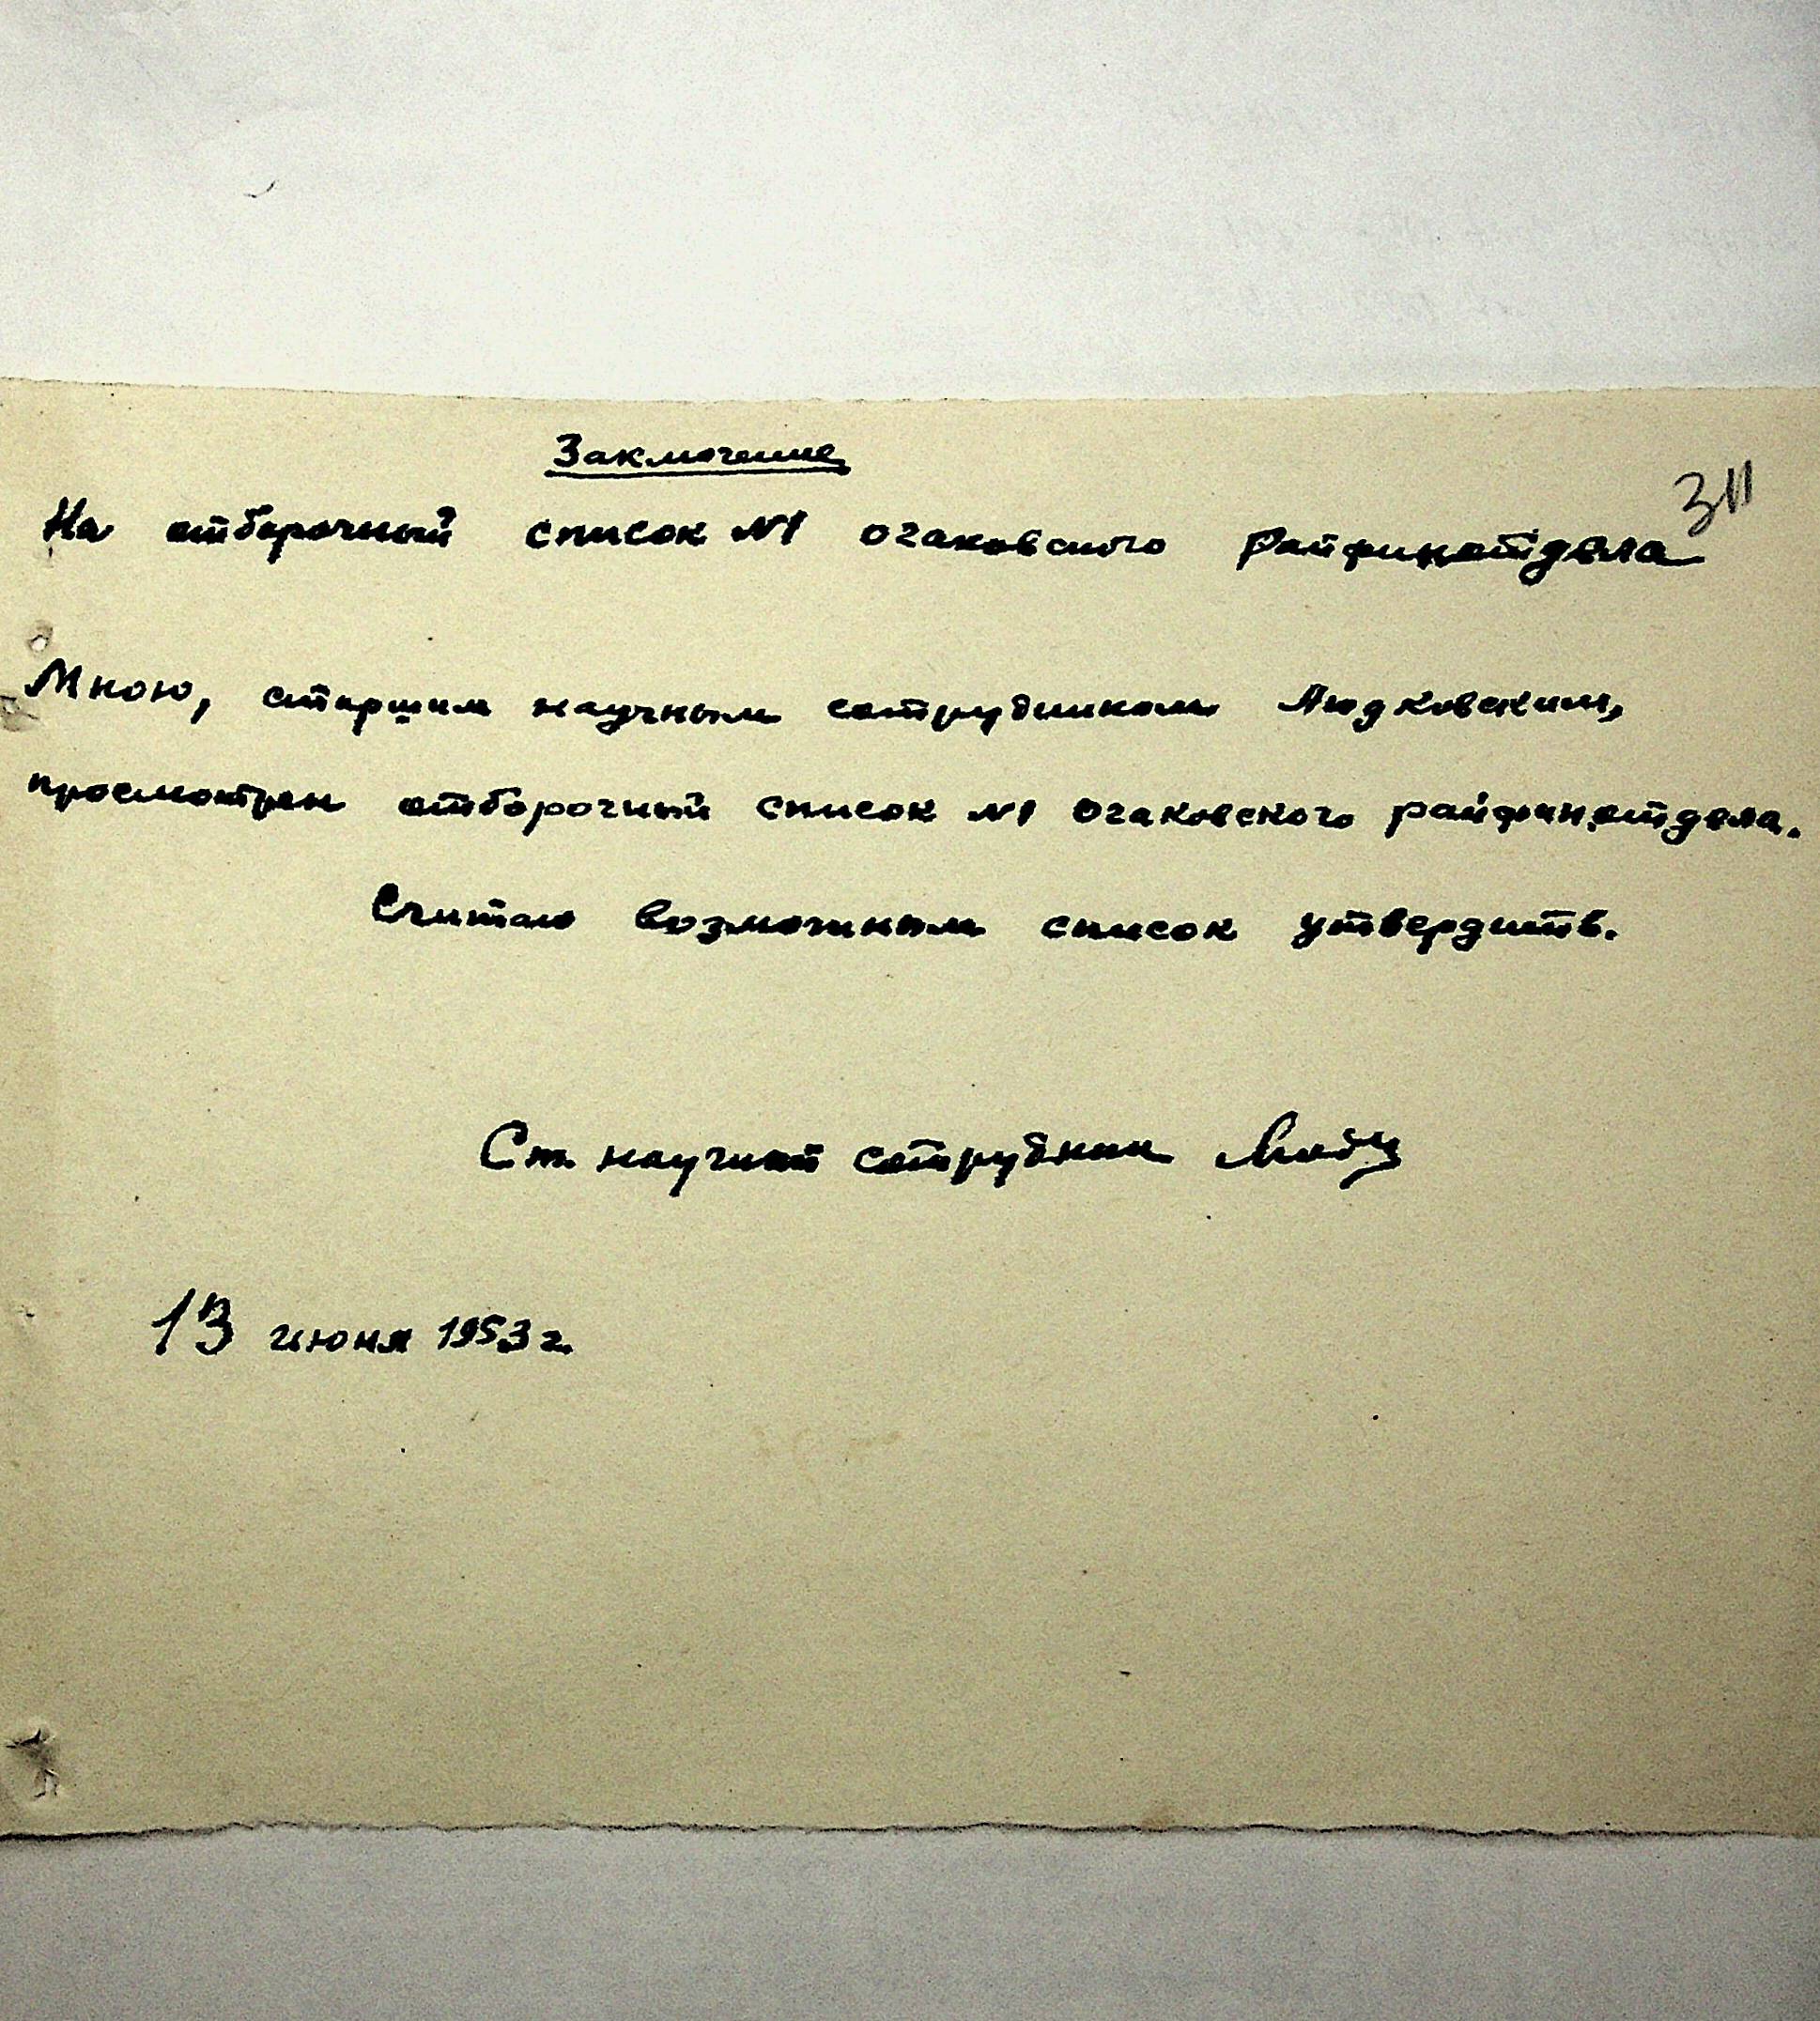 Заключение
311
На отборочный список №1 Очаковского райфинотдела
Мною, старшим научным сотрудником Людковским,
просмотрен отборочный список №1 Очаковского райфинотдела.
Считаю возможным список утвердить.
Ст. научный сотрудник
13 июня 1953 г.